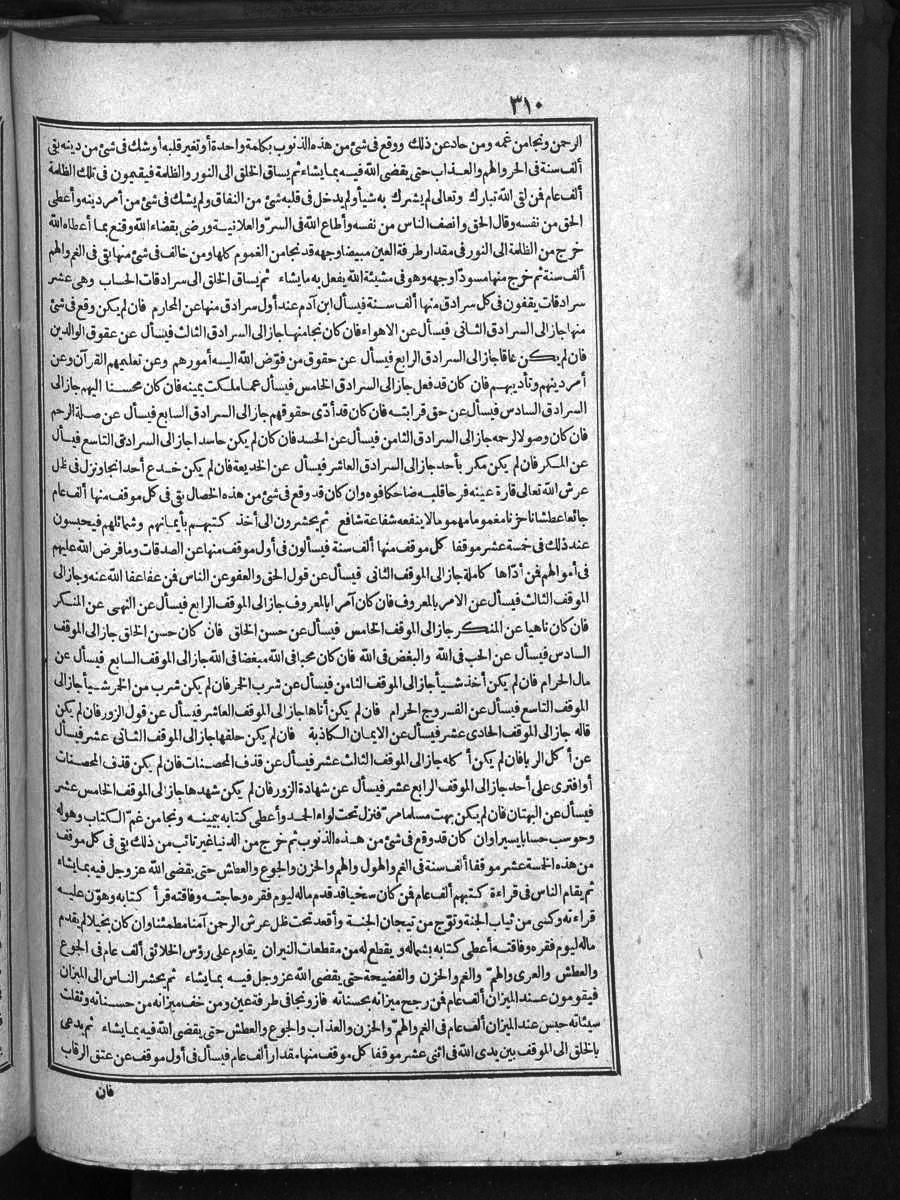 ٣١٠
الرحمن ونجا من غمه ومن حاد عن ذلك ووقع في شئ من هذه الذنوب بكلمة واحدة أو تغير قلبه أو شك في شئ من دينه بقى
ألف سنة في الحر والهم والعذاب حتى يقضى الله فيه بما يشاء ثم يساق الخلق الى النور والظلمة فيقيمون في تلك الظلمة
ألف عام فمن لقى الله تبارك وتعالى لم يشرك به شيأ ولم يدخل في قلبه شئ من النفاق ولم يشك في شئ من أمر دينه وأعطى
الحق من نفسه وقال الحق وأنصف الناس من نفسه وأطاع الله في السر والعلانية ورضى بقضاء الله وقنع بما أعطاه الله
خرج من الظلمة الى النور في مقدار طرفة العين مبيضا وجهه قد نجا من الغموم كلها ومن خالف في شئ منها بقى في الغم والهم
ألف سنة ثم خرج منها مسودّا وجهه وهو في مشيئة الله يفعل به ما يشاء ثم يساق الخلق الى سرادقات الحساب وهى عشر
سرادقات يقفون في كل سرادق منها ألف سنة فيسأل ابن آدم عند أول سرادق منها عن المحارم فان لم يكن وقع في شئ
منها جاز الى السرادق الثانى فيسأل عن الاهواء فان كان نجا منها جاز الى السرادق الثالث فيسأل عن عقوق الوالدين
فان لم يكن عاقا جاز الى السرادق الرابع فيسأل عن حقوق من فوّض الله اليه أمورهم وعن تعليمهم القرآن وعن
أمر دينهم وتأديبهم فان كان قد فعل جاز الى السرادق الخامس فيسأل عما ملكت يمينه فان كان محسنا اليهم جاز الى
السرادق السادس فيسأل عن حق قرابته فان كان قد أدّى حقوقهم جاز الى السرادق السابع فيسأل عن صلة الرحم
فان كان وصولا لرحمه جاز الى السرادق الثامن فيسأل عن الحسد فان كان لم يكن حاسدا جاز الى السرادق التاسع فيسأل
عن المكر فان لم يكن مكر بأحد جاز الى السرادق العاشر فيسأل عن الخديعة فان لم يكن خدع أحدا نجا ونزل في ظل
عرش الله تعالى قارة عينه فرحا قلبه ضاحكا فوه وان كان قد وقع في شئ من هذه الخصال بقى في كل موقف منها ألف عام
جائعا عطشانا حزنا مغموما مهموما لا ينفعه شفاعة شافع ثم يحشرون الى أخذ كتبهم بأيمانهم وشمائلهم فيحبسون
عند ذلك في خمسة عشر موقفا كل موقف منها ألف سنة فيسألون في أول موقف منها عن الصدقات وما فرض الله عليهم
في أموالهم فمن أدّاها كاملة جاز الى الموقف الثانى فيسأل عن قول الحق والعفو عن الناس فمن عفا عفا الله عنه وجاز الى
الموقف الثالث فيسأل عن الامر بالمعروف فان كان آمرا بالمعروف جاز الى الموقف الرابع فيسأل عن النهى عن المنكر
فان كان ناهيا عن المنكر جاز الى الموقف الخامس فيسأل عن حسن الخلق فان كان حسن الخلق جاز الى الموقف
السادس فيسأل عن الحب في الله والبغض في الله فان كان محبا في الله مبغضا في الله جاز الى الموقف السابع فيسأل عن
مال الحرام فان لم يكن أخذ شيأ جاز الى الموقف الثامن فيسأل عن شرب الخمر فان لم يكن شرب من الخمر شيأ جاز الى
الموقف التاسع فيسأل عن الفروج الحرام فان لم يكن أتاها جاز الى الموقف العاشر فيسأل عن قول الزور فان لم يكن
قاله جاز الى الموقف الحادى عشر فيسأل عن الايمان الكاذبة فان لم يكن حلفها جاز الى الموقف الثانى عشر فيسأل
عن أكل الربا فان لم يكن أكله جاز الى الموقف الثالث عشر فيسأل عن قذف المحصنات فان لم يكن قذف المحصنات
أو افترى على أحد جاز الى الموقف الرابع عشر فيسأل عن شهادة الزور فان لم يكن شهدها جاز الى الموقف الخامس عشر
فيسأل عن البهتان فان لم يكن بهت مسلما مرّ فنزل تحت لواء الحمد وأعطى كتابه بيمينه ونجا من غمّ الكتاب وهوله
وحوسب حسابا يسيرا وان كان قد وقع في شئ من هذه الذنوب ثم خرج من الدنيا غير تائب من ذلك بقى في كل موقف
من هذه الخمسة عشر موقفا ألف سنة في الغم والهول والهم والحزن والجوع والعطش حتى يقضى الله عز وجل فيه بما يشاء
ثم يقام الناس في قراءة كتبهم ألف عام فمن كان سخيا قد قدم ماله ليوم فقره وحاجته وفاقته قرأ كتابه وهوّن عليه
قراءته وكسى من ثياب الجنة وتوّج من تيجان الجنة وأقعد تحت ظل عرش الرحمن آمنا مطمئنا وان كان بخيلا لم يقدم
ماله ليوم فقره وفاقته أعطى كتابه بشماله ويقطع له من مقطعات النيران يقاوم على رؤس الخلائق ألف عام في الجوع
والعطش والعرى والهمّ والغم والحزن والفضيحة حتى يقضى الله عز وجل فيه بما يشاء ثم يحشر الناس الى الميزان
فيقومون عند الميزان ألف عام فمن رجح ميزانه بحسناته فاز ونجا في طرفة عين ومن خف ميزانه من حسناته وثقلت
سيئاته حبس عند الميزان ألف عام في الغم والهمّ والحزن والعذاب والجوع والعطش حتى يقضى الله فيه بما يشاء ثم يدعى
بالخلق الى الموقف بين يدى الله في اثنى عشر موقفا كل موقف منها مقدار ألف عام فيسأل في أول موقف عن عتق الرقاب
فان